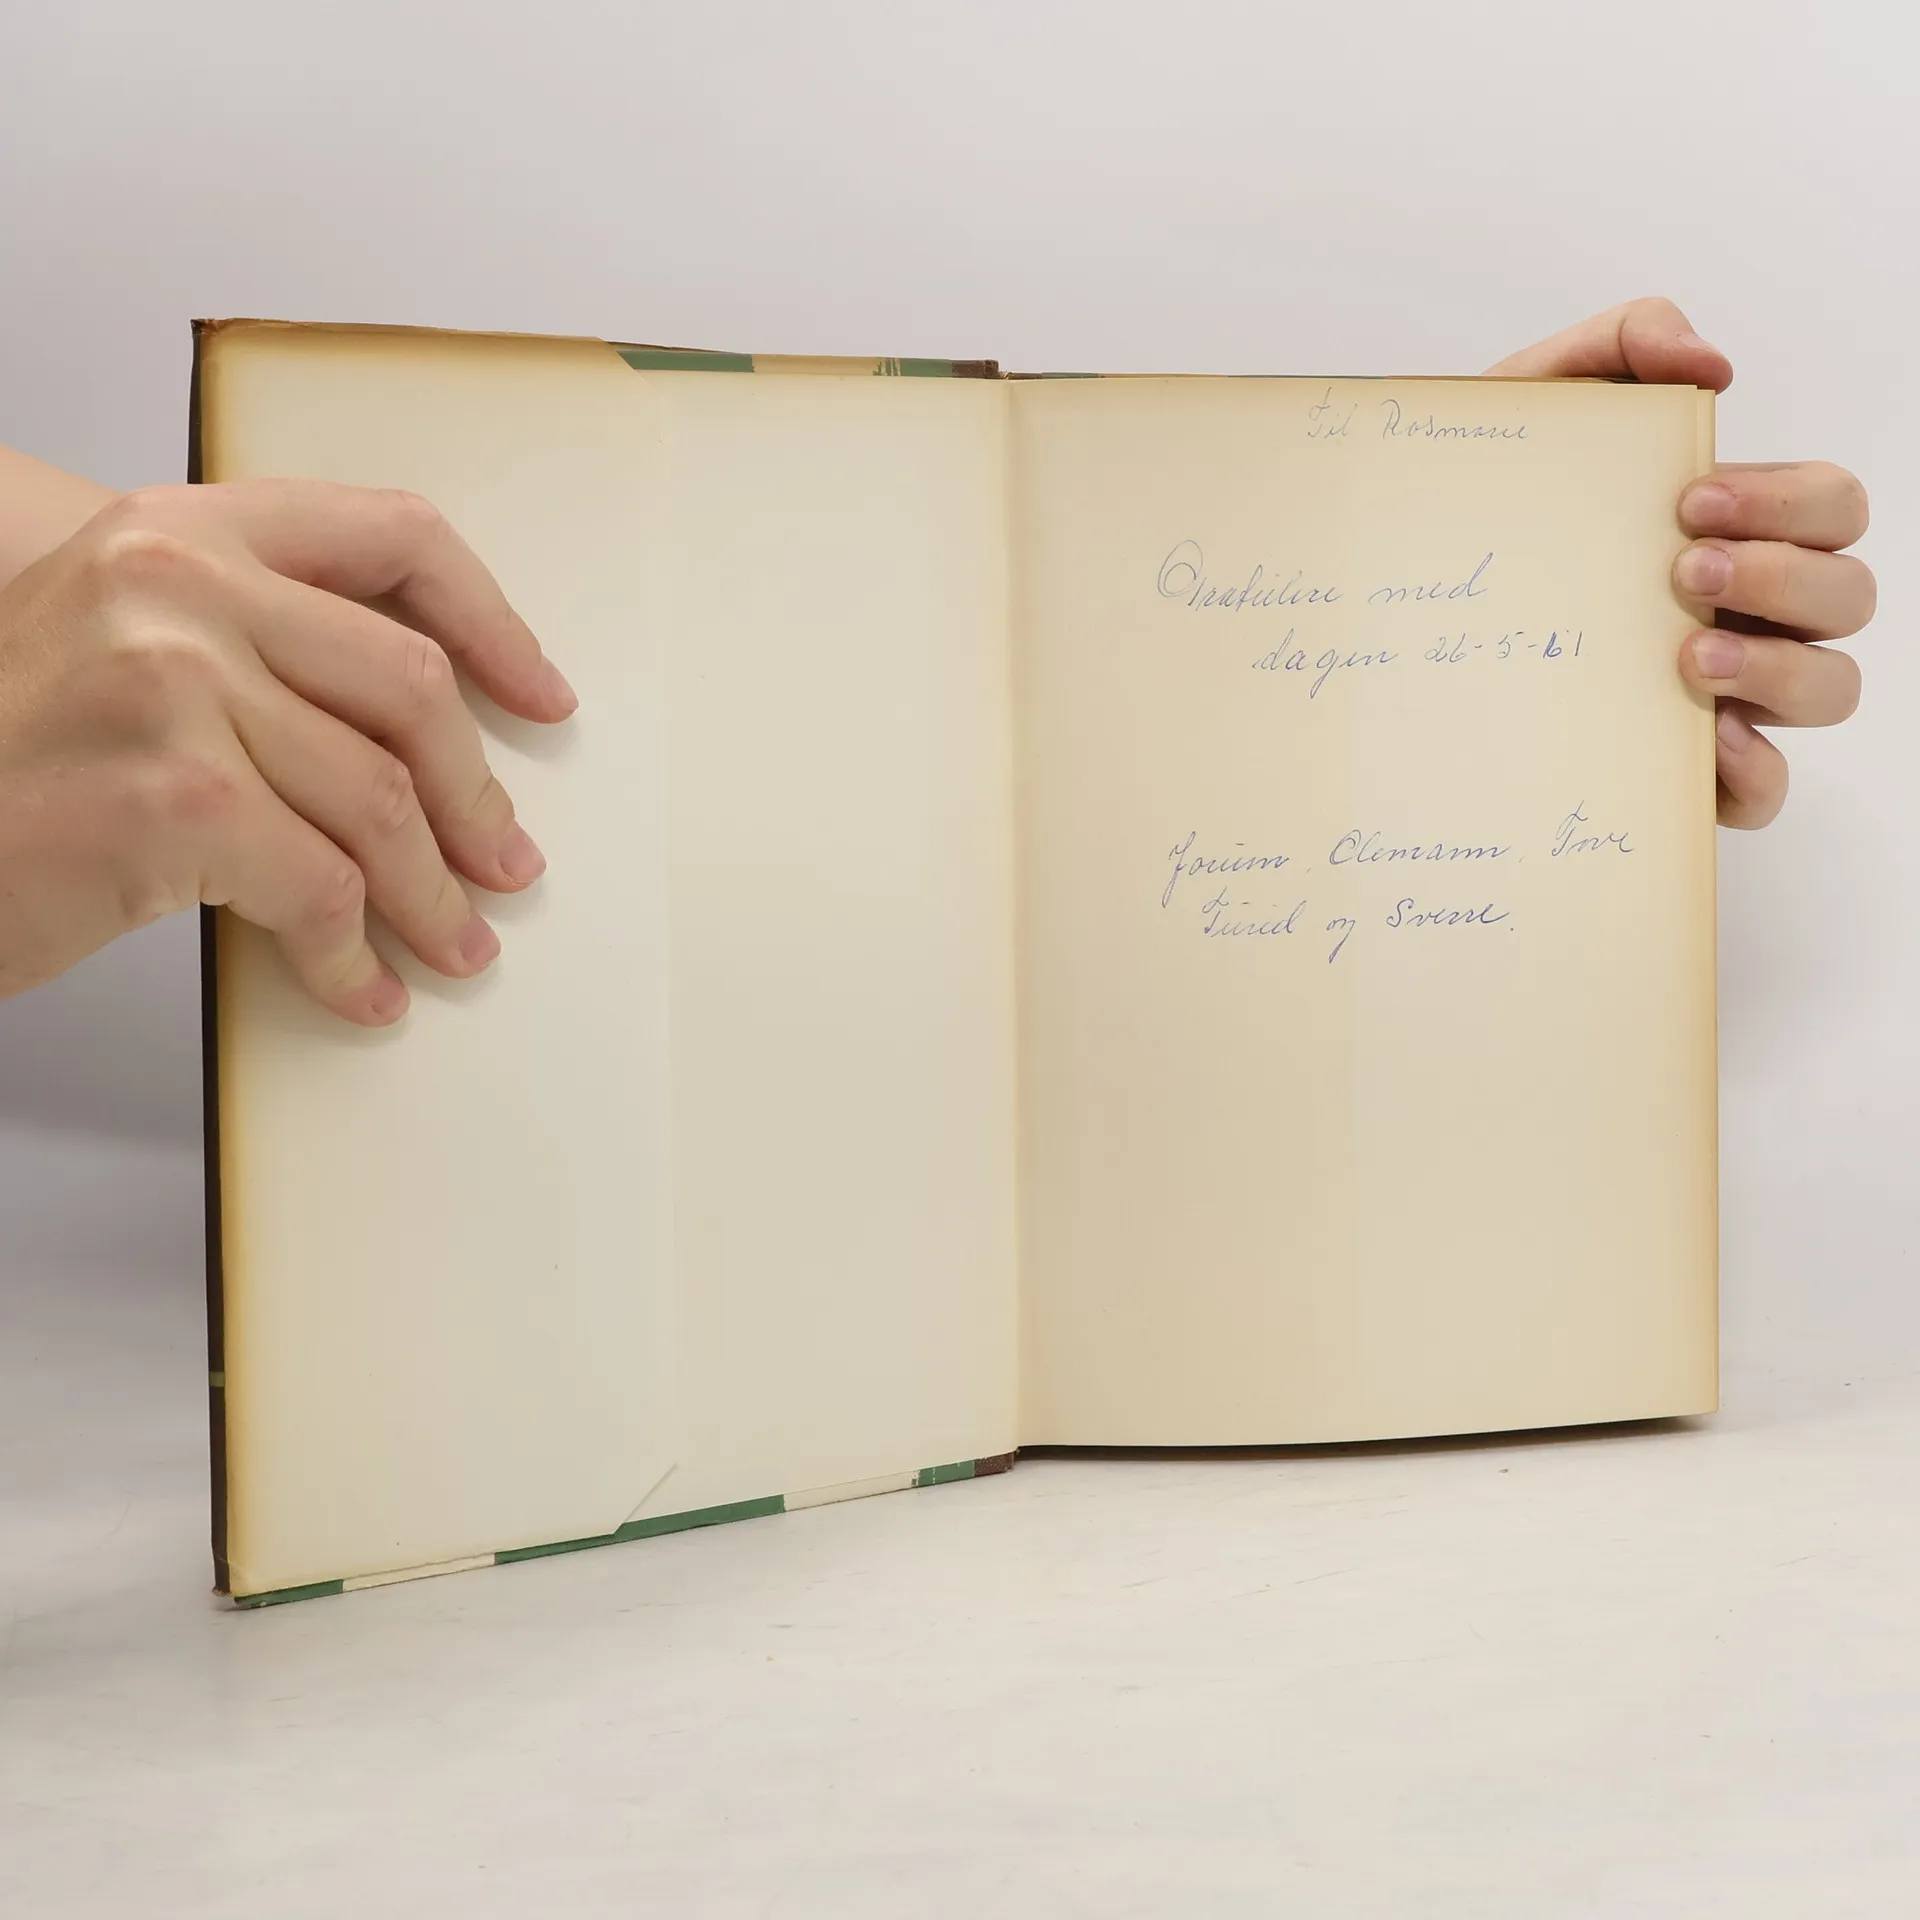 Til Rosmarie
Gratulere med
dagen 26-5-61
Jorunn, Clemann, Tove
Turid og Sverre.